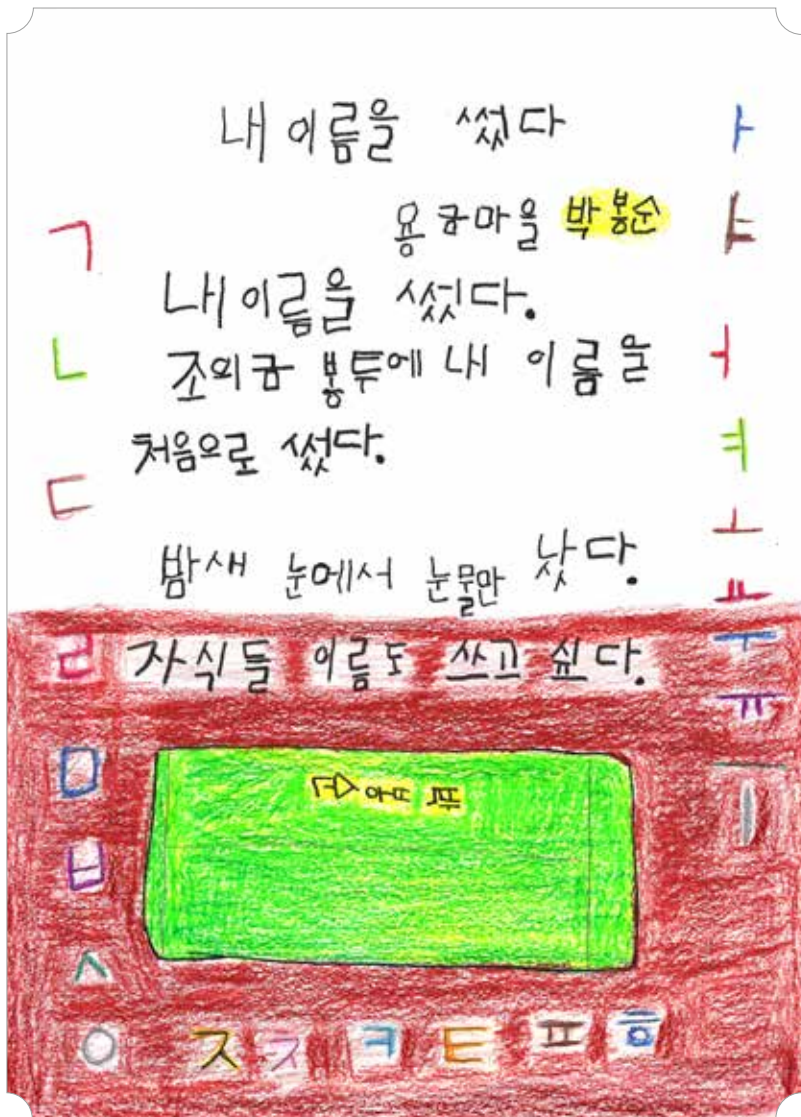 내 이름을 썼다
용금마을 박봉순
내 이름을 썼다.
조의금 봉투에 내 이름을
처음으로 썼다.
밤새 눈에서 눈물만 났다.
자식들 이름도 쓰고 싶다.
박봉순
ㄱ
ㄴ
ㄷ
ㄹ
ㅁ
ㅂ
ㅅ
ㅇ ㅈ ㅊ ㅋ ㅌ ㅍ ㅎ
ㅏ
ㅑ
ㅓ
ㅕ
ㅗ
ㅛ
ㅜ
ㅠ
ㅡ
ㅣ